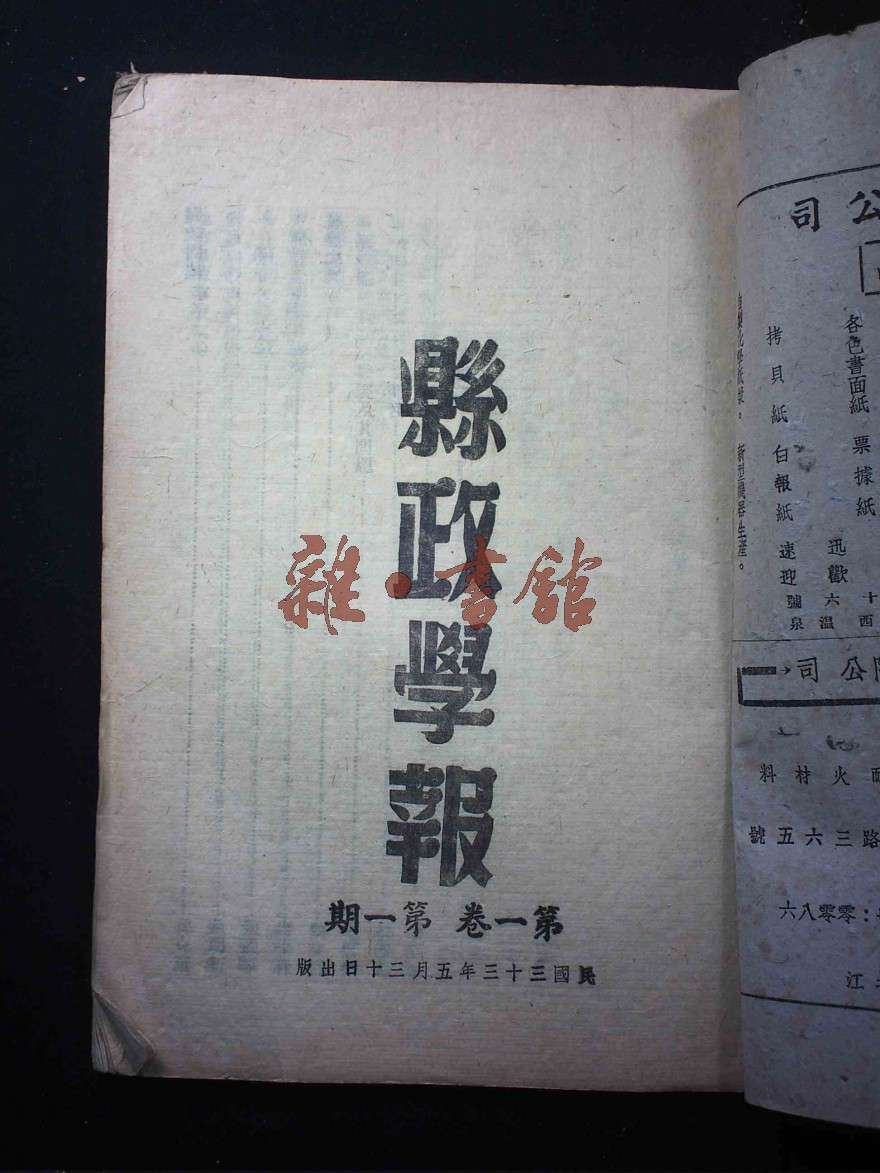 縣政學報
第一卷 第一期
民國三十三年五月三十日出版
雜·書館
公司
各色書面紙 票據紙
拷貝紙 白報紙
新型機器生產。
迅
歡
速
迎
十六號
西溫泉
公司
火材料
路三六五號
零零八六
江